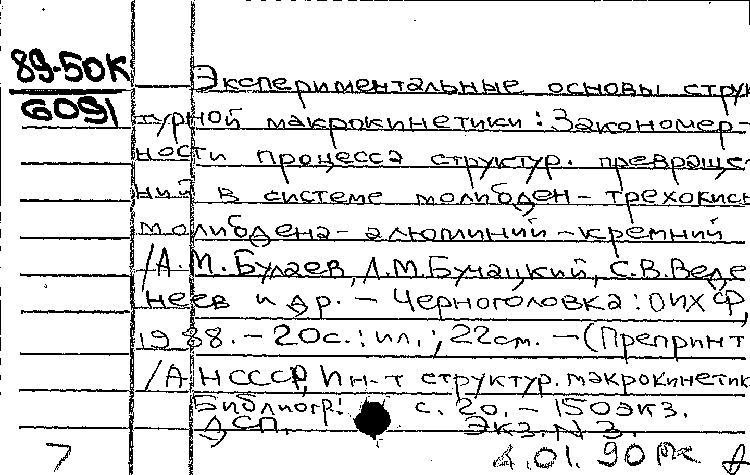 89-50К
6091
Экспериментальные основы струк
турной макрокинетики: Закономер-
ности процесса структур. превраще-
ний в системе молибден - трехокись
молибдена - алюминий - кремний
/А.М. Булаев, А.М. Бучацкий, С.В. Веде
неев и др. - Черноголовка: ОИХФ,
1988. - 20с.: ил.; 22см. - (Препринт
/АН СССР, Ин-т структур. макрокинетик
Библиогр.: с. 20. - 150экз.
ДСП. Экз. N 3.
7 4.01.90